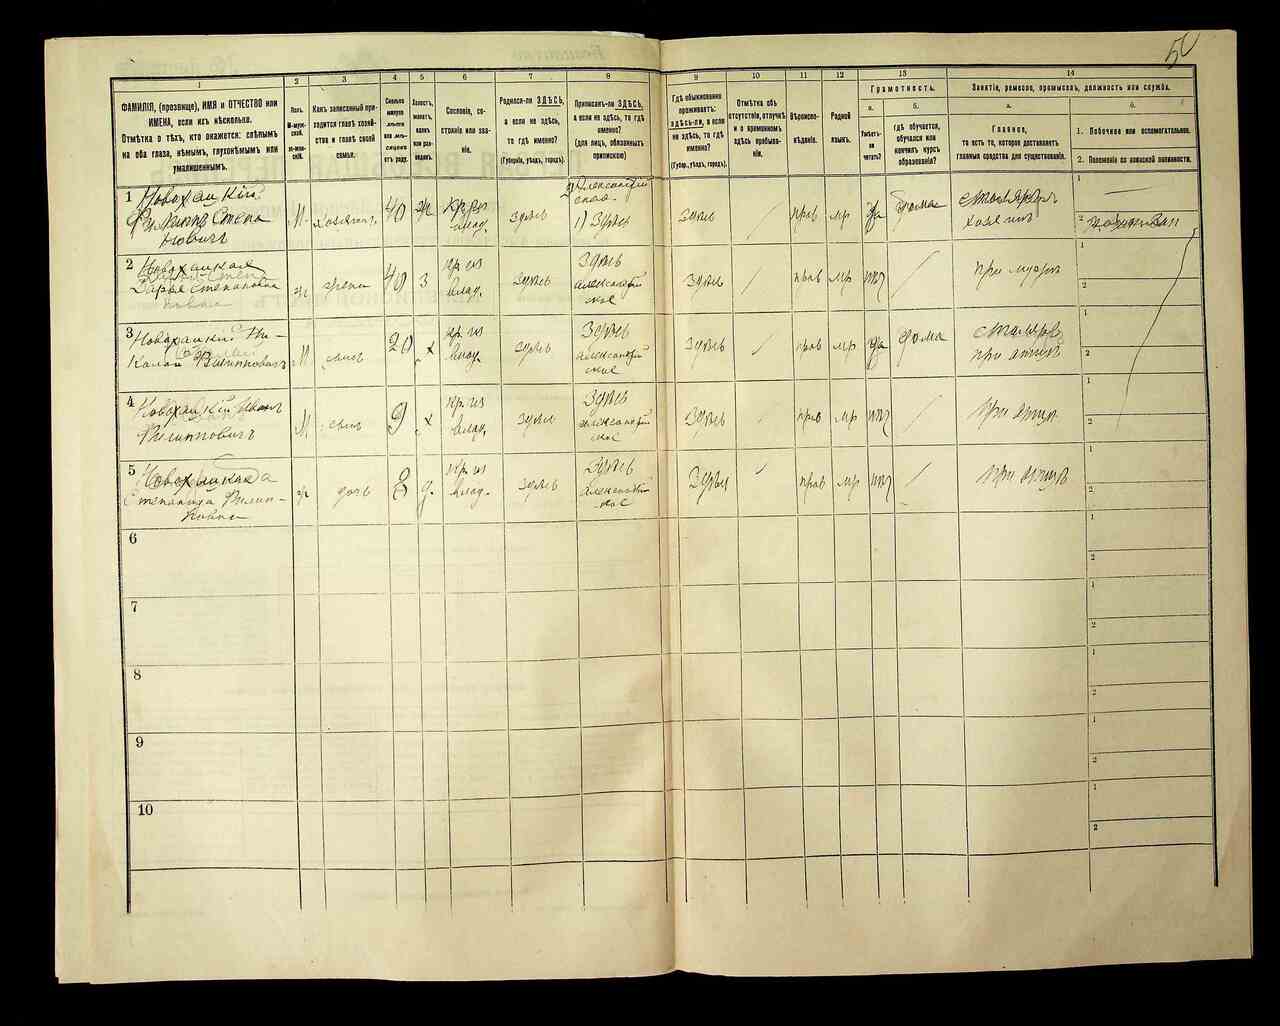 50
1
2
3
4
5
6
7
8
9
10
11
12
13
14
ФАМИЛІЯ, (прозвище), ИМЯ и ОТЧЕСТВО или
ИМЕНА, если ихъ нѣсколько.
Отмѣтка о тѣхъ, кто окажется: слѣпымъ
на оба глаза, нѣмымъ, глухонѣмымъ или
умалишеннымъ.
Полъ.
М-муж-
ской.
Ж-жен-
скій.
Какъ записанный при-
ходится главѣ хозяй-
ства и главѣ своей
семьи.
Сколько
минуло
лѣтъ
или мѣ-
сяцевъ
отъ роду.
Холостъ,
женатъ,
вдовъ
или раз-
веденъ.
Сословіе, со-
стояніе или зва-
ніе.
Родился-ли ЗДѢСЬ,
а если не здѣсь,
то гдѣ именно?
(Губернія, уѣздъ, городъ).
Приписанъ-ли ЗДѢСЬ,
а если не здѣсь, то гдѣ
именно?
(Для лицъ, обязанныхъ
припискою)
Гдѣ обыкновенно
проживаетъ:
здѣсь-ли, а если
не здѣсь, то гдѣ
именно?
(Губерн., уѣздъ, городъ).
Отмѣтка объ
отсутствіи, отлучкѣ
и о временномъ
здѣсь пребыва-
ніи.
Вѣроиспо-
вѣданіе.
Родной
языкъ.
Грамотность.
а.
Умѣетъ-
ли
читать?
б.
гдѣ обучается,
обучался или
кончилъ курсъ
образованія?
Занятіе, ремесло, промыселъ, должность или служба.
а.
Главное,
то есть то, которое доставляетъ
главныя средства для существованія.
б.
1. Побочное или вспомогательное.
2. Положеніе по воинской повинности.
1
Новохацкій
Филиппъ Степа
новичъ
М
хозяинъ
40
ж
кр. из
влад.
здѣсь
1) Здѣсь
Здѣсь
прав
мр
да
дома
хозяинъ
1
2
2
Новохацкая
Дарья Степановна
ж
жена
40
з
кр из
влад.
здѣсь
Здѣсь
Александрій
ское
Здѣсь
прав
мр
нѣт
при мужѣ
1
2
3
Новохацкій Ни-
колай Филипповичъ
М
сынъ
20
х
кр. из
влад.
здѣсь
Здѣсь
Александрій
ское
Здѣсь
прав
мр
да
дома
столяръ
при отцѣ
1
2
4
Новохацкій Иванъ
Филипповичъ
М
сынъ
9
х
кр. из
влад.
здѣсь
Здѣсь
Александрій
ское
Здѣсь
прав
мр
нѣт
при отцѣ
1
2
5
Новохацкая
Степанида Филип-
повна
ж
дочь
8
д.
кр. из
влад.
здѣсь
Здѣсь
Александрій
ское
Здѣсь
прав
мр
нѣт
при отцѣ
1
2
6
1
2
7
1
2
8
1
2
9
1
2
10
1
2